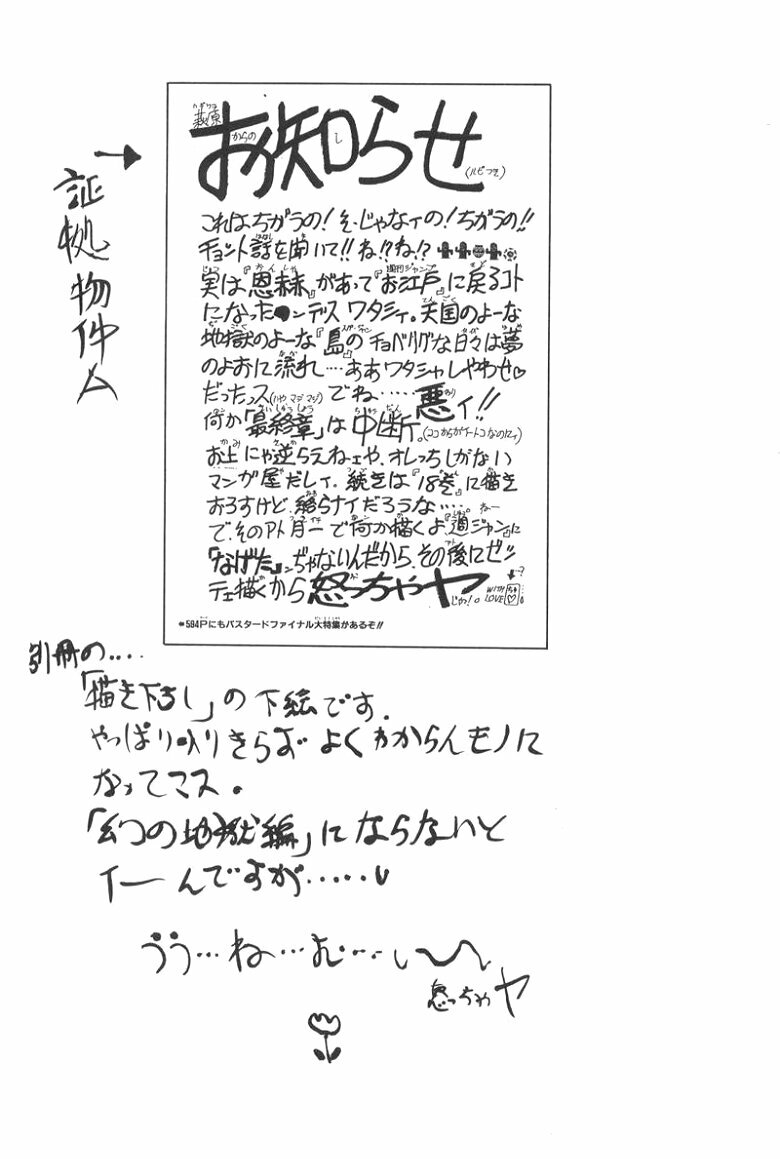 証拠物件A
萩原からのお知らせ(ルビつき)
これはちがうの!そーじゃなィの!ちがうの!!
チョット話を聞いて!!ね!?ね!?
実は『恩赦』があって『お江戸』に戻るコト
になったンデス ワタシィ。天国のよーな
地獄のよーな『島』のチョベリグな日々は夢
のよおに流れ…ああワタシャしやわせ♡
だったっス(ハヤ マジ マジ)でね……悪ィ!!
何か「最終章」は中断。(ココからがイートコなのにィ)
お上にゃ逆らえねェや、オレっちしがない
マンガ屋だしィ、続きは『18巻』に描き
おろすけど、終らナイだろうな……ねー
で、そのアト月一で何か描くよ、『週ジャン』に
『なげた』んぢゃないんだから、その後にゼッ
テェ描くから怒っちゃヤ
じゃっ!。 WITH LOVE
●594Pにもバスタードファイナル大特集があるぞ!!
別冊の....
「描き下ろし」の下絵です.
やっぱり入りきらず よくわからんモノに
なってマス。
「幻の地獄編」にならないと
イーんですが.....
うう…ね…む…い〜
怒っちゃヤ